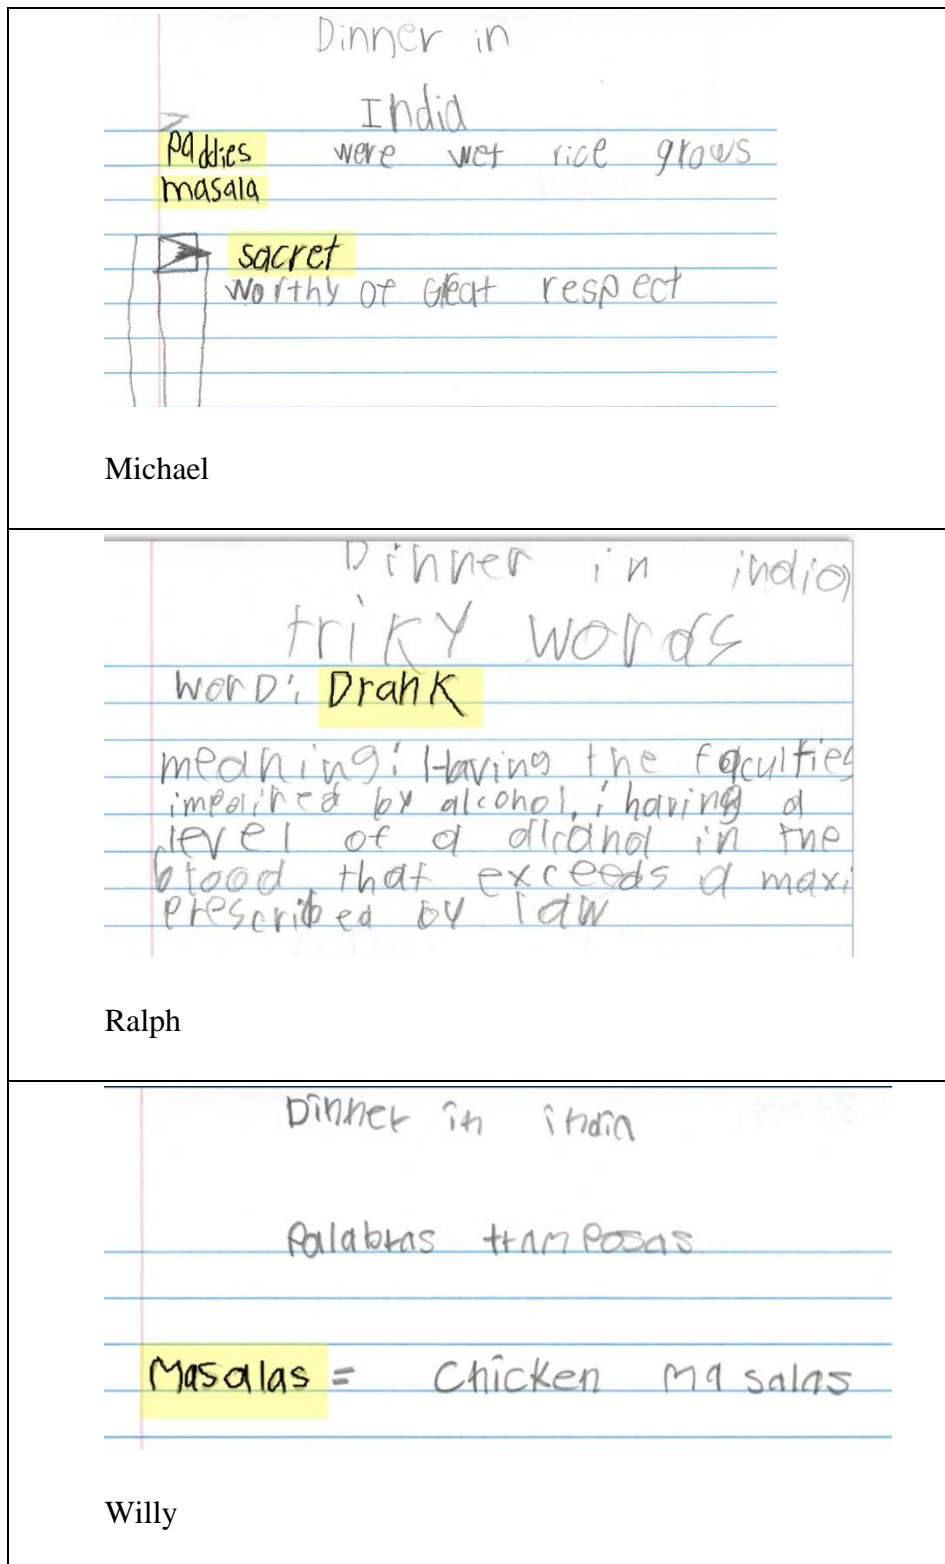 Dinner in
India
paddies were wet rice grows
masala
sacret
worthy of Great respect
Michael
Dinner in india
triky words
WorD: Drank
meaning: Having the faculties
impaired by alcohol, ; having a
level of a alcahol in the
blood that exceeds a maxi
prescribed by law
Ralph
Dinner in india
Palabras tramposas
Masalas = Chicken masalas
Willy